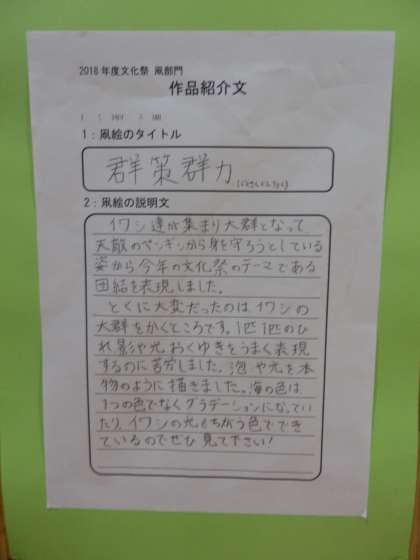 2018年度文化祭 凧部門
作品紹介文
1：凧絵のタイトル
群策群力
(ぐんさくぐんりょく)
2：凧絵の説明文
イワシ達が集まり大群となって、
天敵のペンギンから身を守ろうとしている
姿から今年の文化祭のテーマである
団結を表現しました。
とくに大変だったのはイワシの
大群をかくところです。1匹1匹のひ
れ、影や光、おくゆきをうまく表現
するのに苦労しました。泡や光を本
物のように描きました。海の色は、
1つの色でなくグラデーションになってい
たり、イワシの光もちがう色ででき
ているのでぜひ見て下さい！